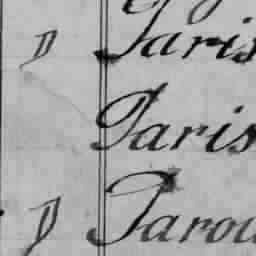 D Paris
Paris
D Parou